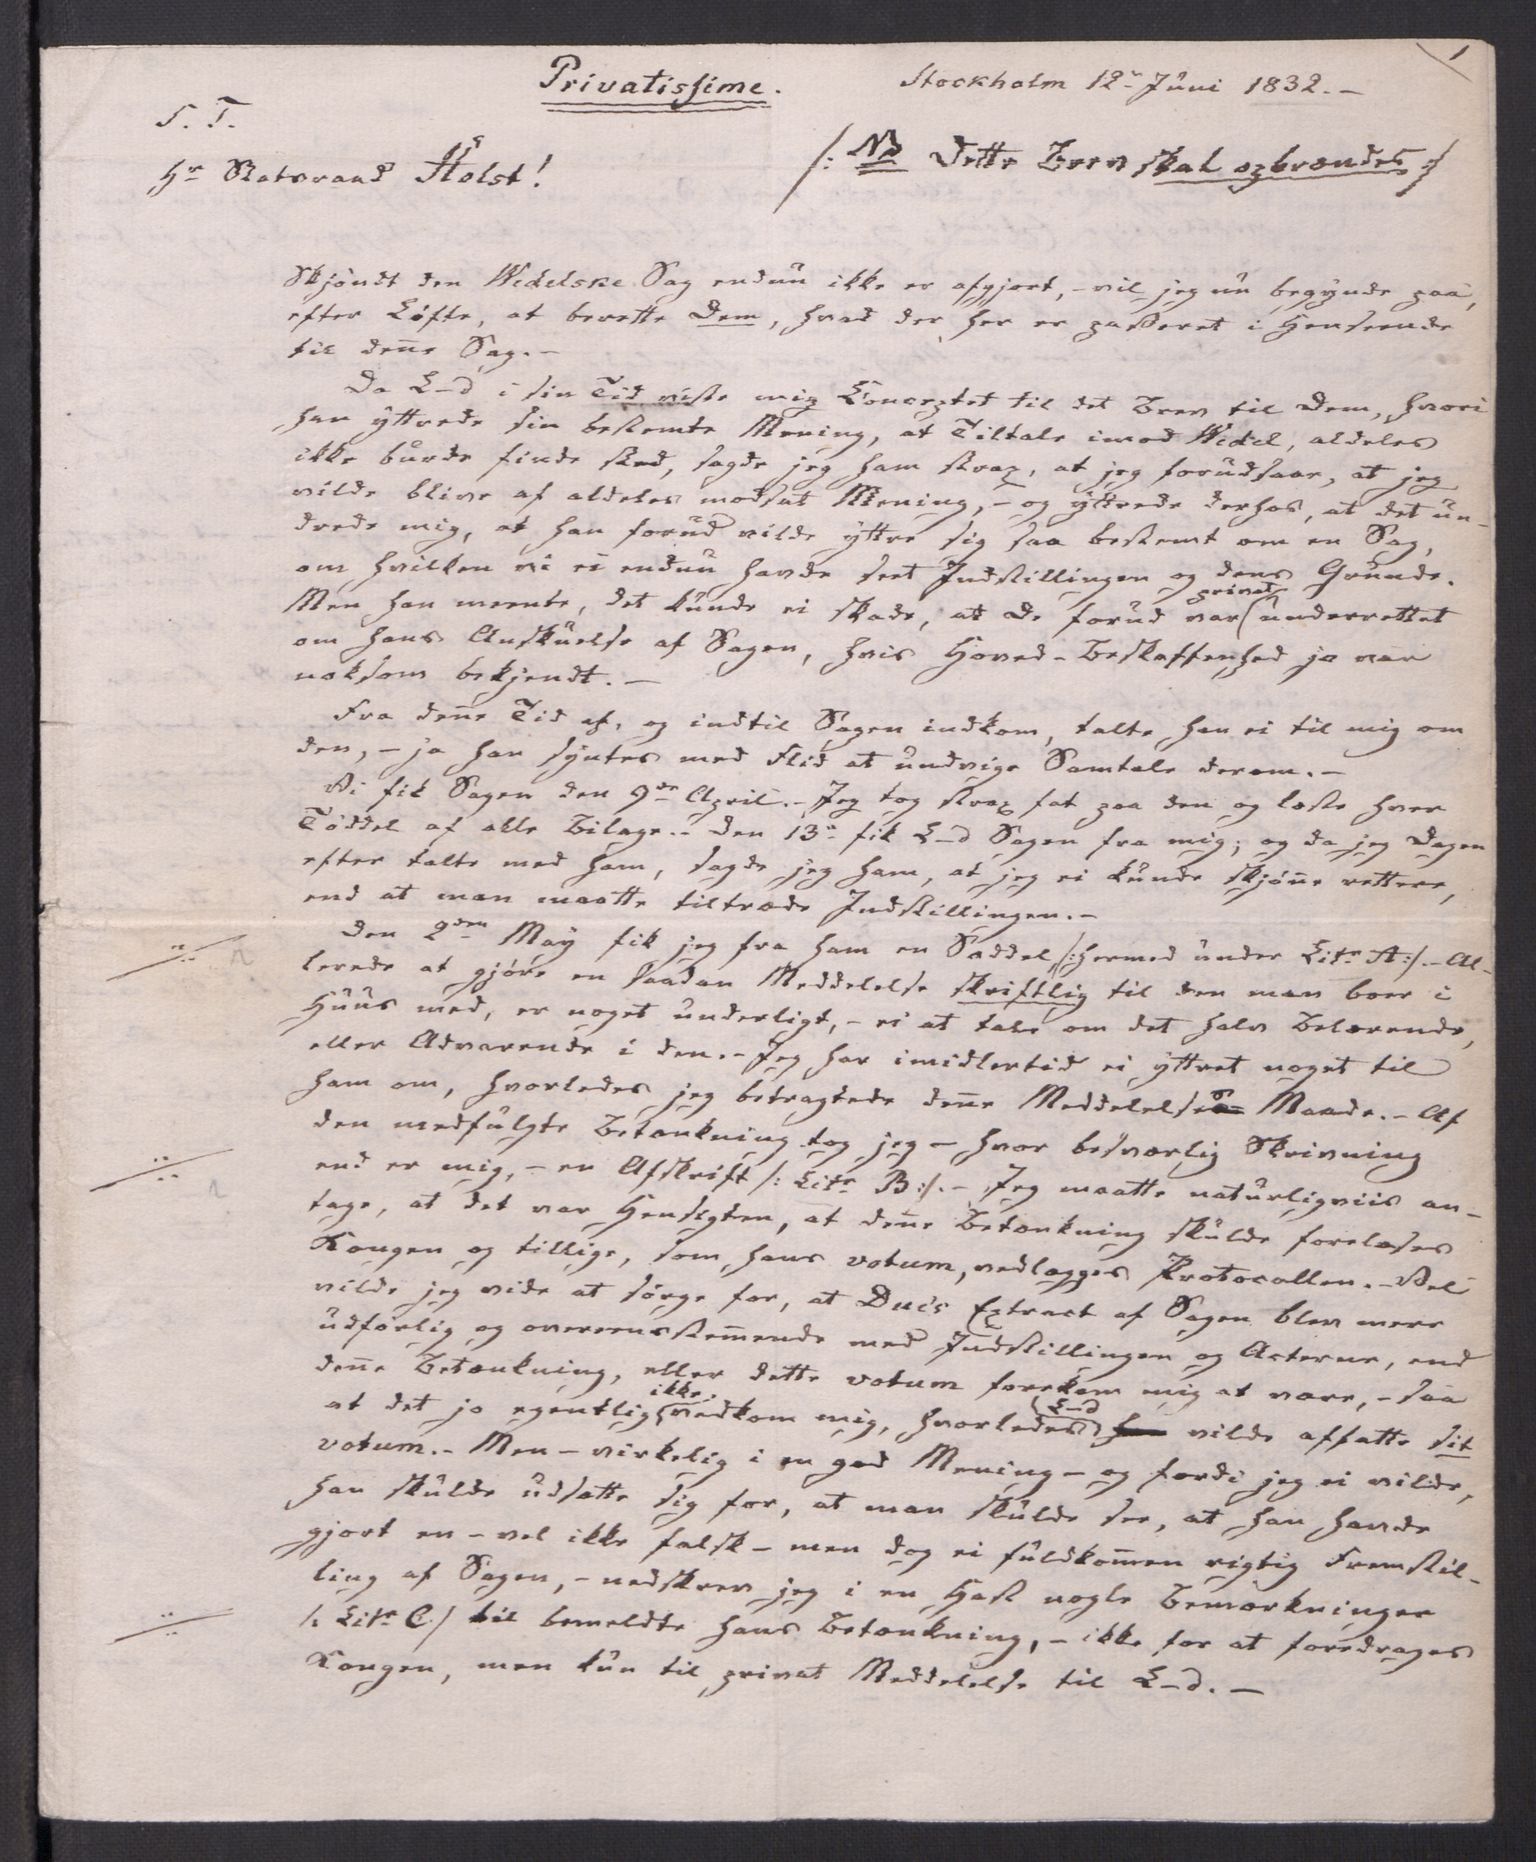 1
Privatissime.
Stockholm 12te Juni 1832.-
S. T.
Hr Statsraad Holst!
/: NB Dette Brev skal opbrændes :/
Skjöndt den Wedelske Sag endnu ikke er afgjort, - vil jeg nu begynde paa,
efter Löfte, at berette Dem, hvad der her er passeret i Henseende
til denne Sag.-
Da L-d i sin Tid viste mig Conceptet til det Brev til Dem, hvori
han yttrede sin bestemte Mening, at Tiltale imod Wedel, aldeles
ikke burde finde Sted, sagde jeg ham strax, at jeg forudsaae, at jeg
vilde blive af aldeles modsat Mening, - og yttrede derhos, at det un-
drede mig, at han forud vilde yttre sig saa bestemt om en Sag,
om hvilken vi ei endnu havde seet Indstillingen og dens Grunde.
Men han meente, det kunde ei skade, at De forud var privat underrettet
om hans Anskuelse af Sagen, hvis Hoved-Beskaffenhed jo var
noksom bekjendt.-
Fra denne Tid af, og indtil Sagen indkom, talte han ei til mig om
den, - ja han syntes med Flid at undvige Samtale derom.-
Vi fik Sagen den 9de April.- Jeg tog strax fat paa den og læste hver
Töddel af alle Bilage.- Den 13de fik L-d Sagen fra mig; og da jeg Dagen
efter talte med ham, sagde jeg ham, at jeg ei kunde skjönne rettere,
end at man maatte tiltræde Indstillingen.-
Den 2den May fik jeg fra ham en Seddel /:hermed under Litr A:/.- Al-
lerede at gjöre en saadan Meddelelse skriftlig til den man boer i
Huus med, er noget underligt, - ei at tale om det halv Belærende,
eller Advarende i den.- Jeg har imidlertid ei yttret noget til
ham om, hvorledes jeg betragtede denne Meddelelses Maade.- Af
den medfulgte Betænkning tog jeg - hvor besværlig Skrivning
end er mig, - en Afskrift /: Litr B:/.- Jeg maatte naturligviis an-
tage, at det var Hensigten, at denne Betænkning skulde forelæses
Kongen og tillige, som hans votum, vedlægges Protocollen.- Vel
vilde jeg vide at sörge for, at Dues Extract af Sagen blev mere
udförlig og overeensstemmende med Indstillingen og Acterne, end
denne Betænkning, eller dette votum forekom mig at være, - saa
at det jo egentlig ikke vedkom mig, hvorledes L-d vilde affatte sit
votum.- Men - virkelig i en god Mening - og fordi jeg ei vilde,
han skulde udsætte sig for, at man skulde see, at han havde
gjort en - vel ikke falsk - men dog ei fuldkommen rigtig Fremstil-
ling af Sagen, - nedskrev jeg i en Hast nogle Bemærkninger
/: Litr C./ til bemeldte hans Betænkning, - ikke for at foredrages
Kongen, men kun til privat Meddelelse til L-d.-